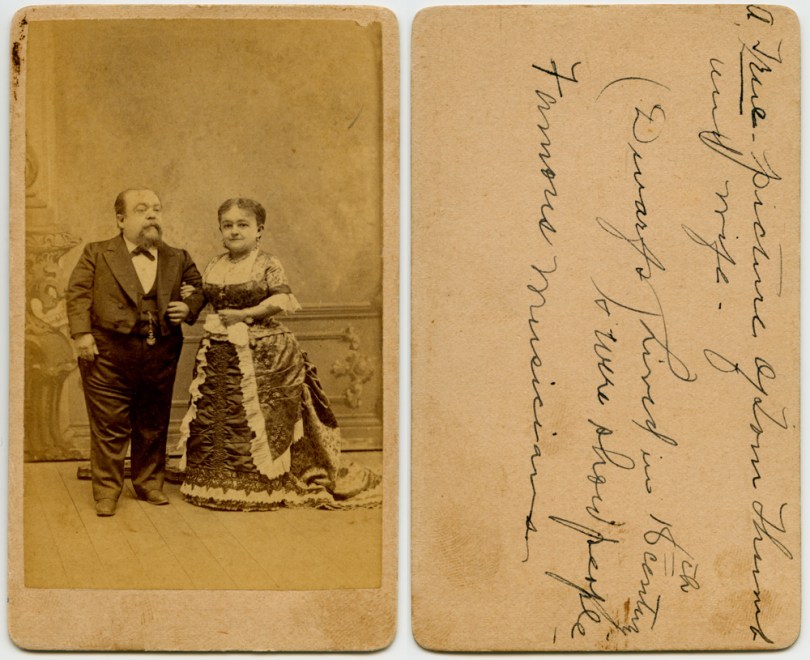 A True - picture of Tom Thumb
and wife -
(Dwarfs) lived in 18th century
& were show people -
Famous Musicians